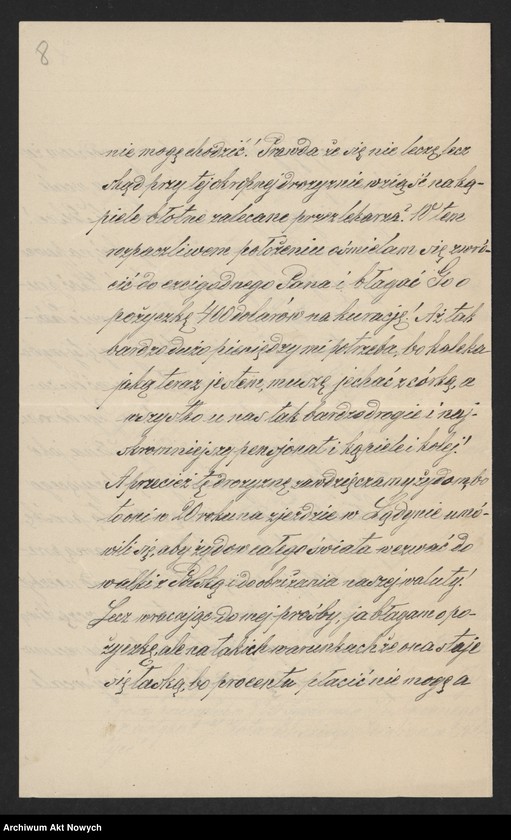 8
nie mogę chodzić! Prawda że się nie leczę, lecz
skąd przy tej okropnej drożyźnie wziąść na ką-
piele błotne zalecane przez lekarza? W tem
rozpaczliwem położeniu ośmielam się zwró-
cić do czcigodnego Pana i błagać Go o
pożyczkę 400 dolarów na kurację! Aż tak
bardzo dużo pieniędzy mi potrzeba, bo kaleka
jaką teraz jestem, muszę jechać z córką, a
wszystko u nas tak bardzo drogie i naj-
skromniejszy pensjonat i kąpiele i kolej!
A przecież tę drożyznę zawdzięczamy żydom, bo
to oni w 20 roku na zjeździe w Lądynie umó-
wili się aby żydów całego świata wezwać do
walki z Polską i do obniżania naszej waluty!
Lecz wracając do mej prośby, ja błagam o po-
życzkę, ale na takich warunkach że ona staje
się łaską, bo procentu płacić nie mogę a
Archiwum Akt Nowych